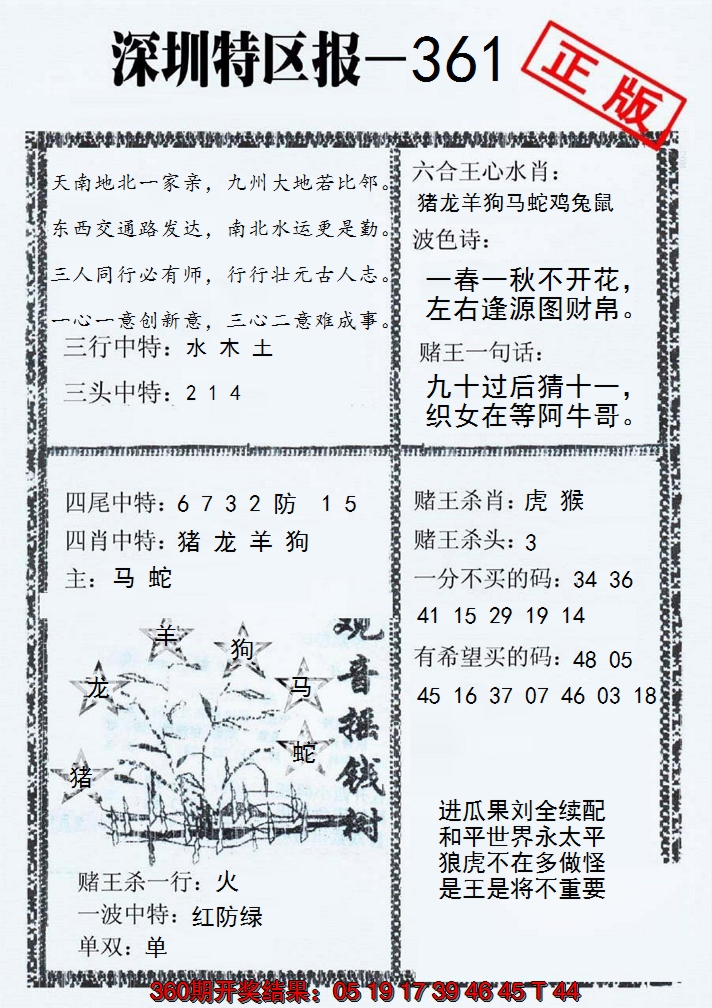 深圳特区报—361
正版
天南地北一家亲，九州大地若比邻。
东西交通路发达，南北水运更是勤。
三人同行必有师，行行壮元古人志。
一心一意创新意，三心二意难成事。
三行中特：水 木 土
三头中特：2 1 4
六合王心水肖：
猪龙羊狗马蛇鸡兔鼠
波色诗：
一春一秋不开花，
左右逢源图财帛。
赌王一句话：
九十过后猜十一，
织女在等阿牛哥。
四尾中特：6 7 3 2 防 1 5
四肖中特：猪 龙 羊 狗
主：马 蛇
观音摇钱树
羊
狗
龙
马
蛇
猪
赌王杀一行：火
一波中特：红防绿
单双：单
赌王杀肖：虎 猴
赌王杀头：3
一分不买的码：34 36
41 15 29 19 14
有希望买的码：48 05
45 16 37 07 46 03 18
进瓜果刘全续配
和平世界永太平
狼虎不在多做怪
是王是将不重要
360期开奖结果：05 19 17 39 46 45 T 44